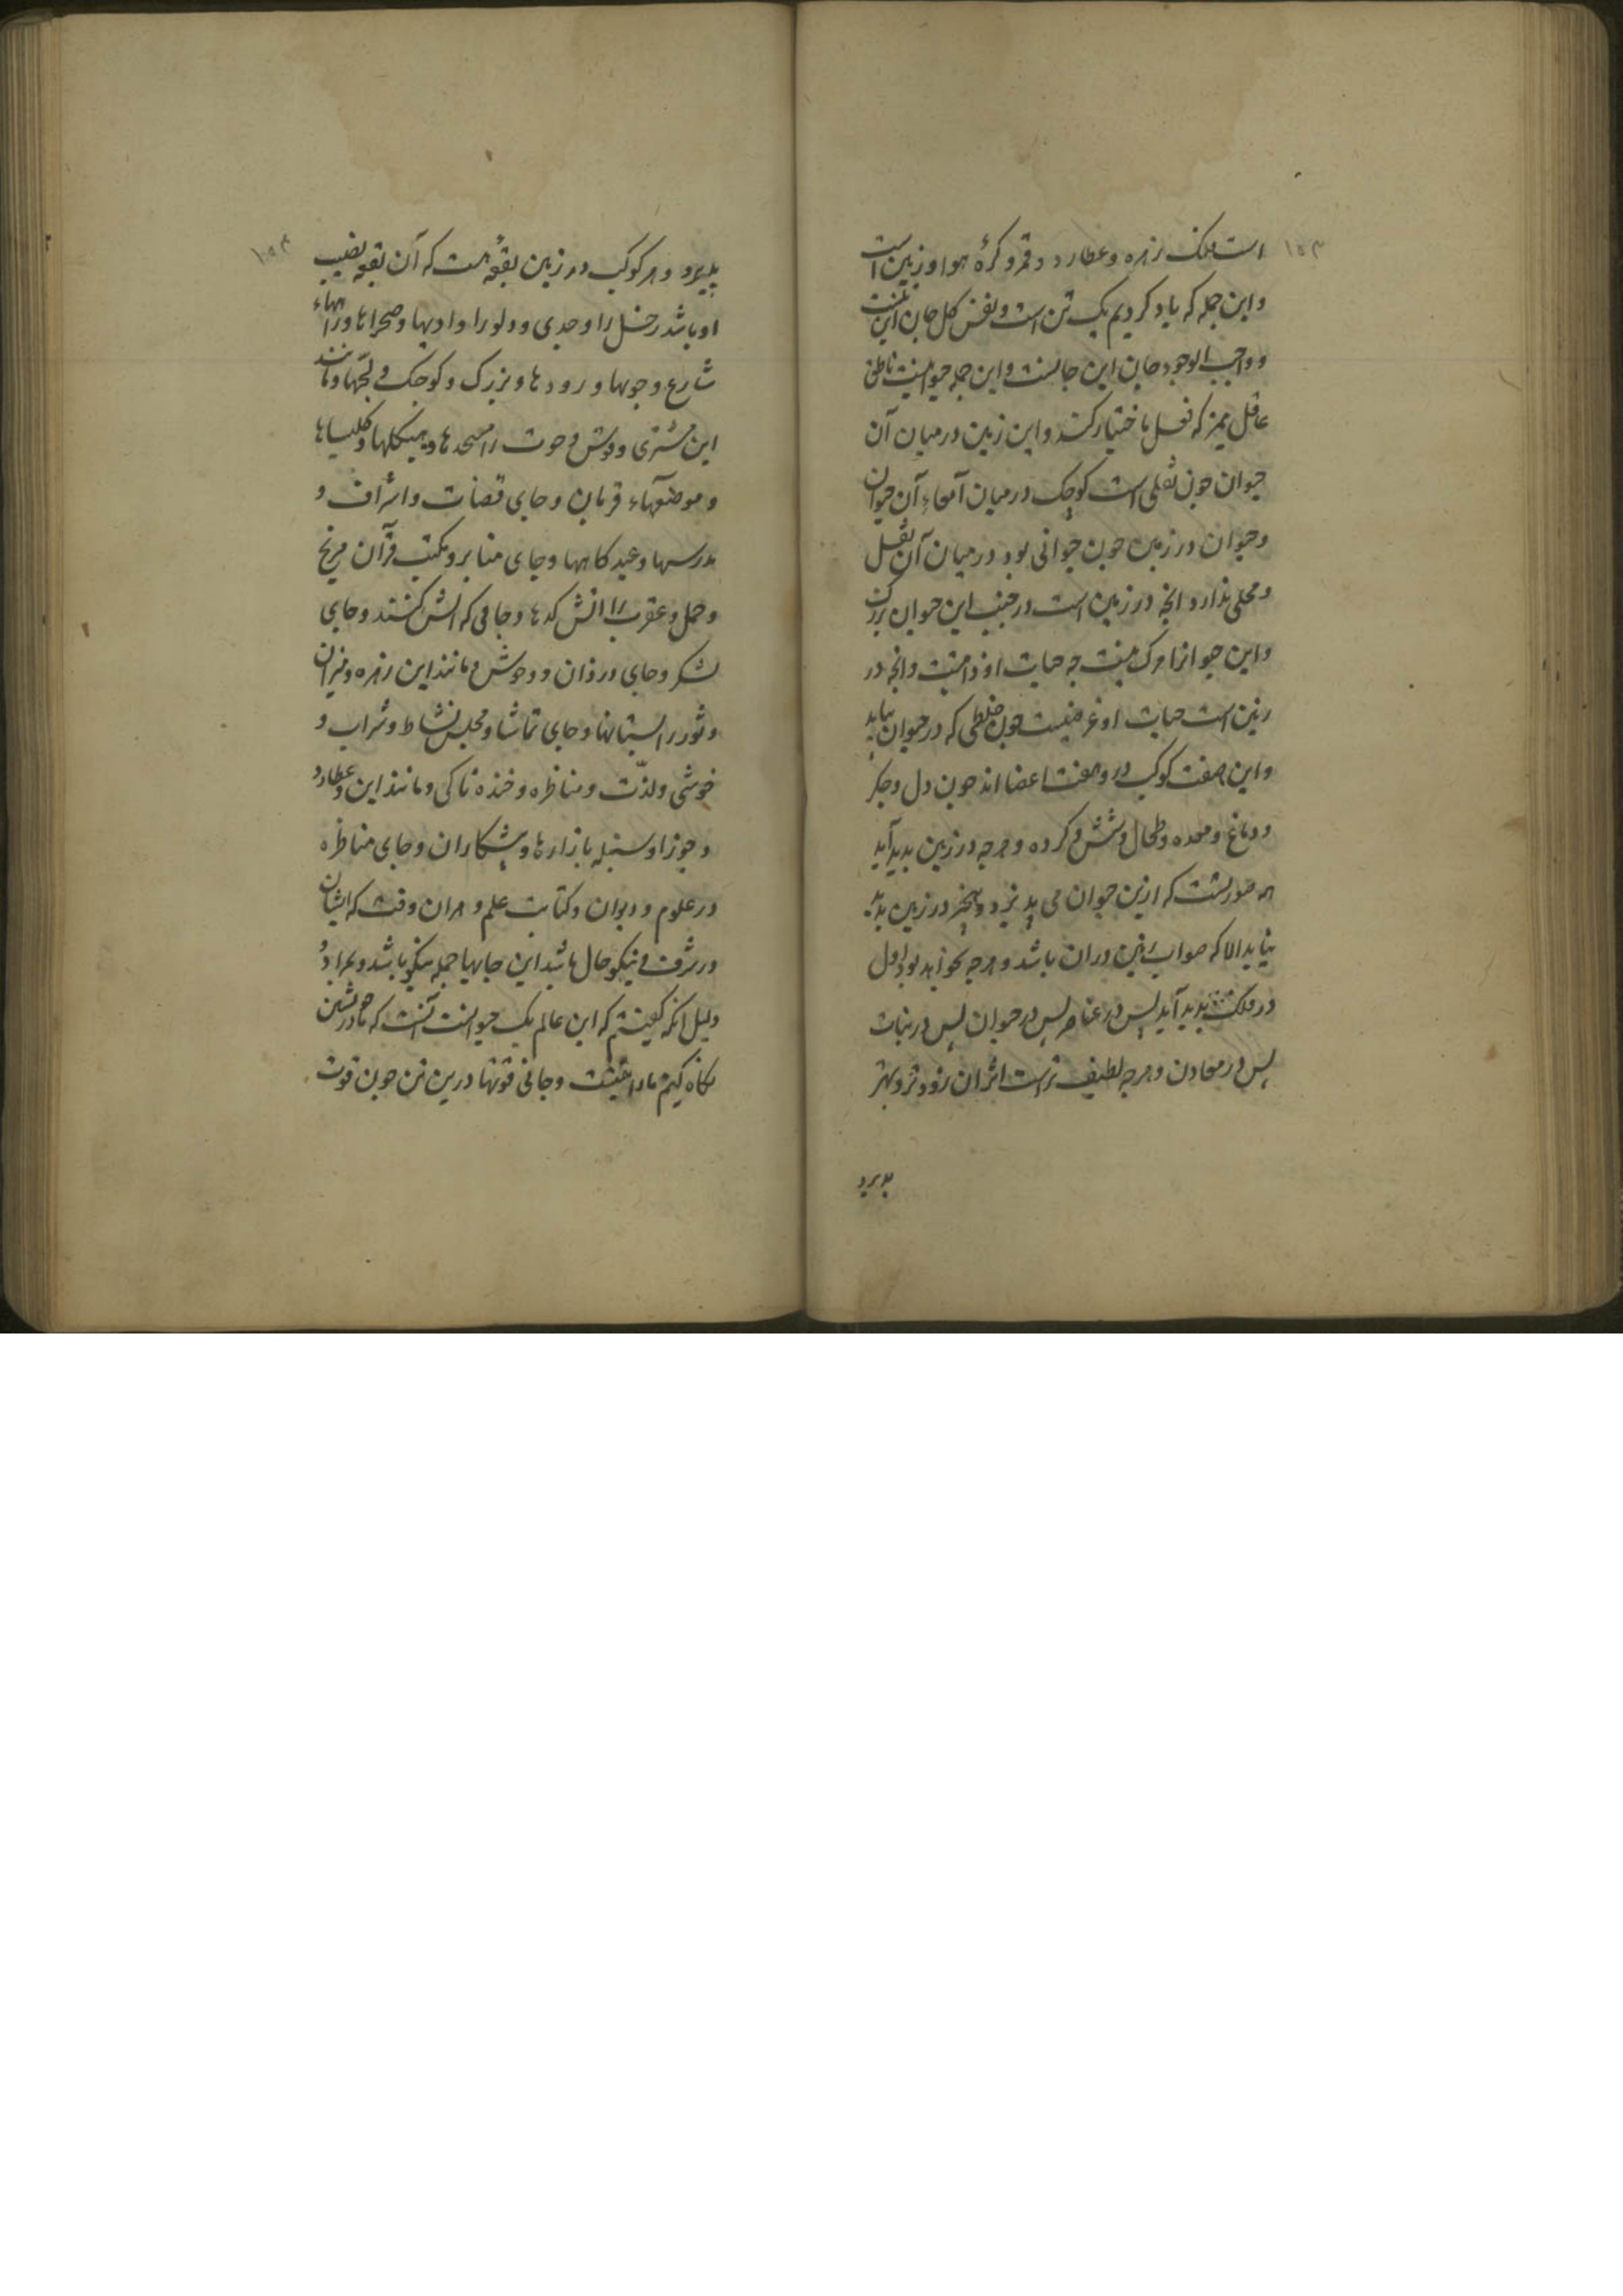 است فلک زهره و عطارد و قمر و کرهٔ هوا و زمین است
و این جمله که یاد کردیم یک تن است و نفس کل جان این تنست
و واجب الوجود جان این جانست و این جمله حیوانیست ناطق
عاقل ممیز که فعل باختیار کند و این زمین در میان آن
حیوان چون ثفلی است کوچک در میان آمعاء آن حیوان
و حیوان در زمین چون حیوانی بود در میان آن ثفل
و محلی ندارد انچه در زمین است در جنب این حیوان بزرک
و این حیوانرا مرک نیست چه حیات او ذاتیست و انچه در
زمین است حیات او عرضیست چون خلطی که در حیوان بیاید
و این هفت کوکب درو هفت اعضا اند چون دل و جکر
و دماغ و معده و طحال و شش و کرده و هرچه در زمین بدید آید
همه صورتست که ازین حیوان می پذیرد و هیچیز در زمین بدید
نیاید الا که صواب زمین دران باشد و هرچه بخواهد بود اول
در فلک بدید آید پس در عناصر پس در حیوان پس در نبات
پس در معادن و هرچه لطیف تر است اثر ان زودتر و بهتر
پذیرد
پذیرد و هر کوکب در زمین بقعهٔ هست که آن بقعه نصیب
او باشد زحل را و جدی و دلو را وادیها و صحراها و راههاء
شارع و جویها و رودها و بزرک و کوچک و لجّها و مانند
این مشتری و قوس و حوت را مسجدها و هیکلها و کلیساها
و موضعهاء قربان و جای قضات و اشراف و
مدرسها و عید کاهها و جای منابر و مکتب قرآن مریخ
و حمل و عقرب را اتش کدها و جائی که اتش کنند و جای
لشکر و جای دزدان و وحوش و مانند این زهره و میزان
و ثور را بستانها و جای تماشا و مجلس نشاط و شراب و
خوشی و لذّت و مناظره و خنده ناکی و مانند این و عطارد
و جوزا و سنبله بازارها و پیشکاران و جای مناظره
در علوم و دیوان و کتابت علم و هران وقت که ایشان
در شرف و نیکو حال باشد این جایها جمله نیکو باشد و بمراد و
دلیل انکه کفیتم که این عالم یک حیوانست آنست که ما در خویشتن
نکاه کنیم ما را تنیست و جانی قوتها درین تن چون قوت